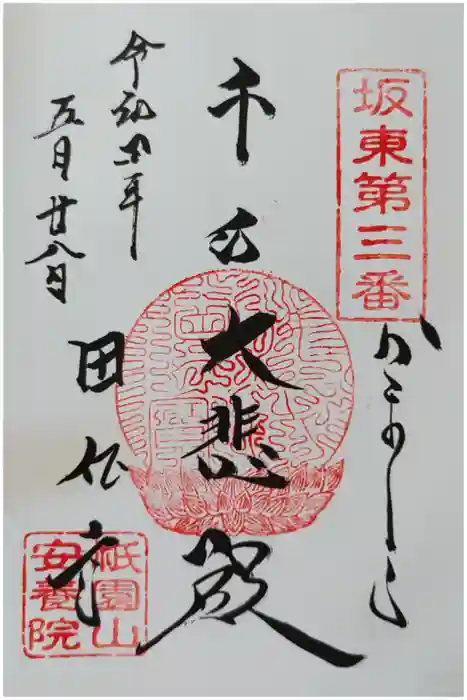 坂東第三番
千手
大悲殿
令和四年
五月廿八日
田代寺
祇園山
安養院